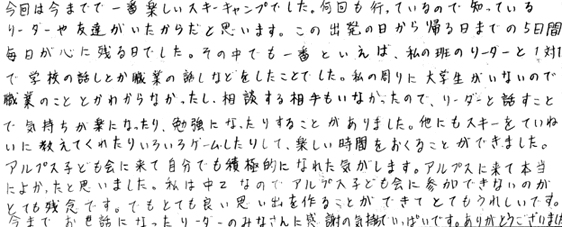 今回は今までで一番楽しいスキーキャンプでした。何回も行っているので知っている
リーダーや友達がいたからだと思います。この出発の日から帰る日までの5日間
毎日が心に残る日でした。その中でも一番といえば、私の班のリーダーと1対1
で学校の話しとか職業の話しなどをしたことでした。私の周りに大学生がいないので
職業のこととかわからなかったし、相談する相手もいなかったので、リーダーと話すこと
で気持ちが楽になったり、勉強になったりすることがありました。他にもスキーをていね
いに教えてくれたりいろいろゲームしたりして、楽しい時間をおくることができました。
アルプス子ども会に来て自分でも積極的になれた気がします。アルプスに来て本当
によかったと思いました。私は中2なのでアルプス子ども会に参加できないのが
とても残念です。でもとても良い思い出を作ることができてとてもうれしいです。
今までお世話になったリーダーのみなさんに感謝の気持でいっぱいです。ありがとうございました